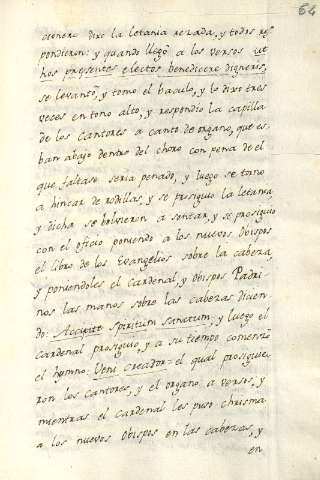 64
cionero dixo la letania rezada, y todos res
pondieron: y quando llegò a los versos ut
hos presentes electos benedicere digneris,
se levantò, y tomo el baculo, y lo dixo tres
veces en tono alto, y respondio la capilla
de los Cantores a canto de organo, que es-
ban abajo dentro del choro con pena de el
que faltase seria penado, y luego se torno
a hincar de rodillas, y se prosiguio la letania
y dicha se bolvieron a sentar, y se prosiguio
con el oficio poniendo a los nuevos obispos
el libro de los Evangelios sobre la cabeza,
y poniendoles el Cardenal, y obispos Padri
nos las manos sobre las cabezas dicien
do: Accipite spiritum sanctum; y luego el
Cardenal prosiguio, y a su tiempo comenzò
el hymno: Veni creator = el qual prosiguie,
ron los cantores, y el organo, a versos, y
mientras el cardenal les puso chrisma
a los nuevos obispos en las cabezas, y
en